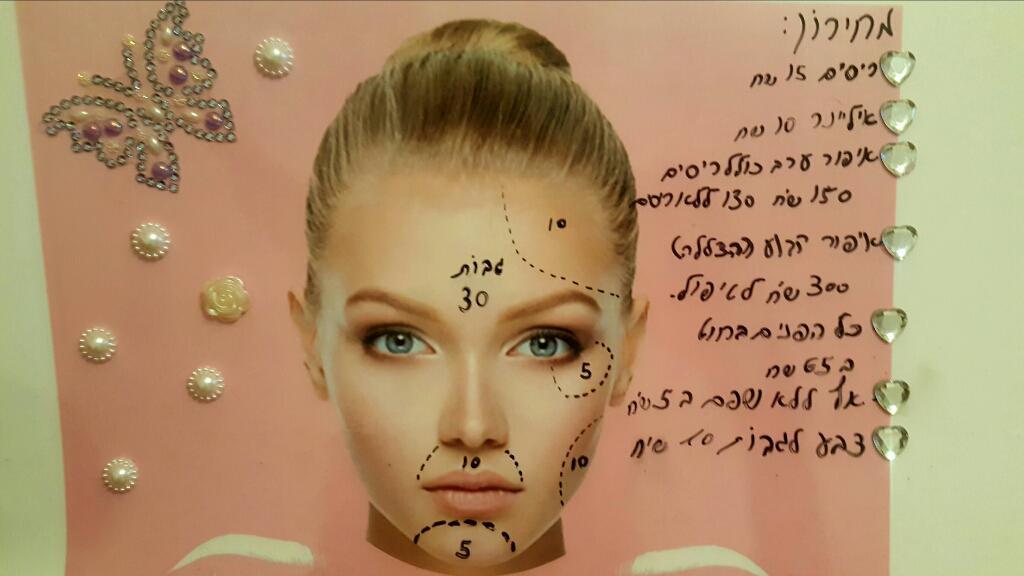 מחירון:
ריסים 15 שח
איליינר 10 שח
איפור ערב כולל ריסים
150 שח 130 ללא ריסים
איפור קבוע (הצללה)
300 שח לטיפול.
כל הפנים בחוט
ב 65 שח
אף ללא שפם ב 5 שח
צבע לגבות 10 שח
10
גבות
30
5
10
10
5